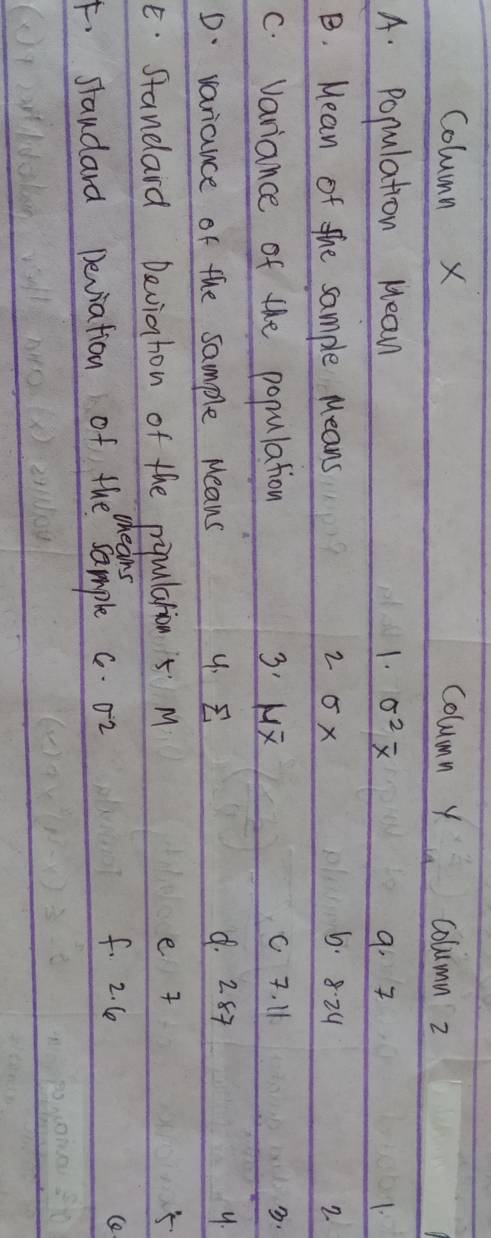 Column X Column Y Column Z
A. Population Mean 1. σ² x̄ a. 7 1.
B. Mean of the sample Means 2 σ x b. 8.24 2.
C. Variance of the population 3. Mx̄ c. 7.11 3.
D. Variance of the sample Means 4. Σ d. 2.87 4.
E. Standard Deviation of the population 5. M e. 7 5.
F. Standard Deviation of the sample means 6. σ2 f. 2.6 6.